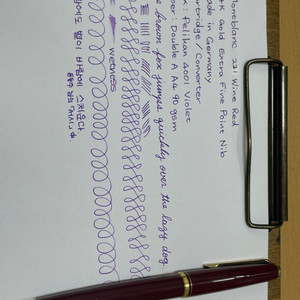 Montblanc 221 Wine Red
K Gold Extra Fine Point Nib
ade in Germany
artridge / Converter
k : Pelikan 4001 Violet
per : Double A A4 90 gsm
brown fox jumps quickly over the lazy dog
wetness
별이 바람에 스치운다